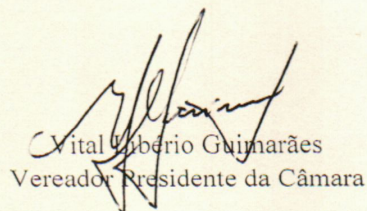 Vital Libério Guimarães
Vereador Presidente da Câmara